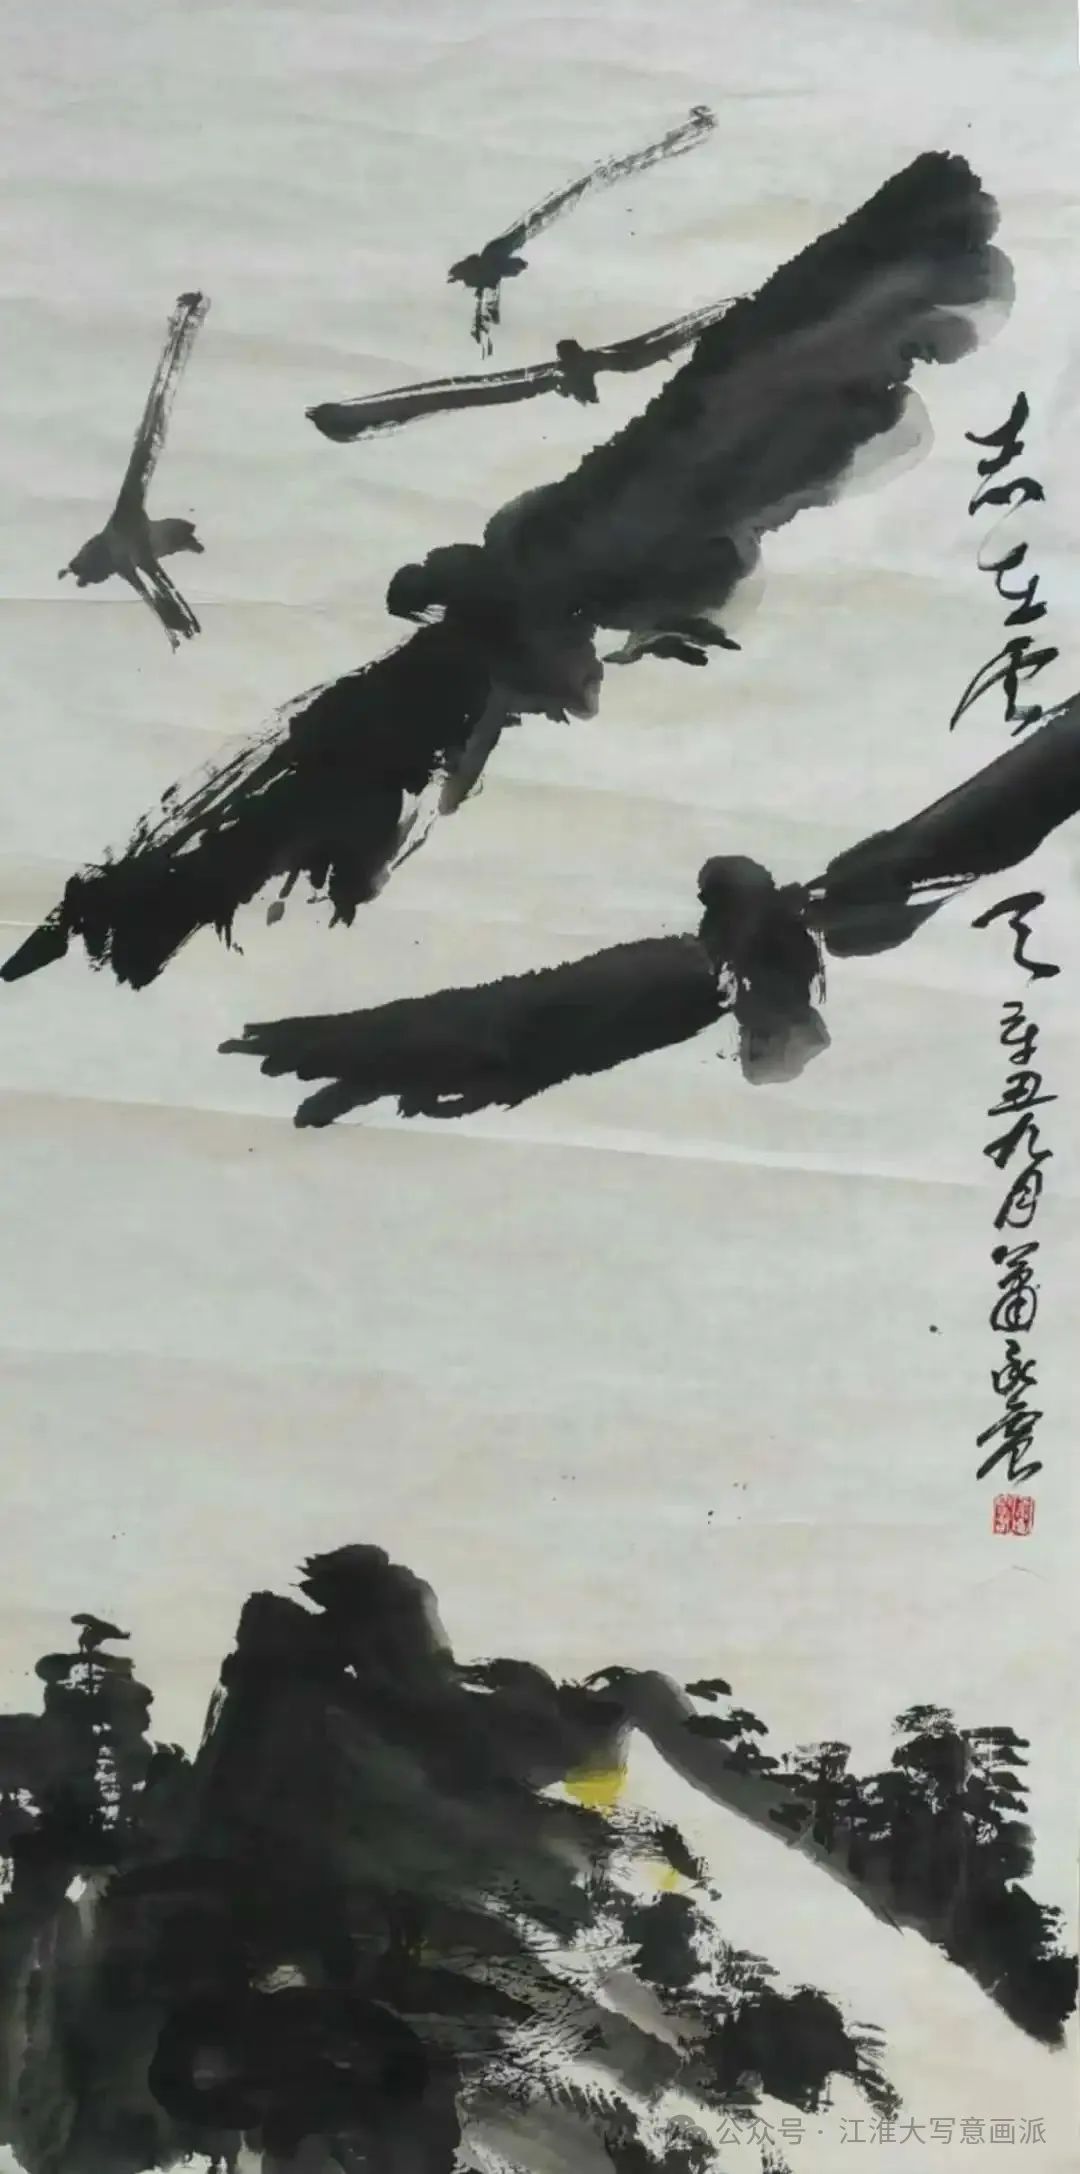 志在雲天 辛丑九月蕭承震
公众号 · 江淮大写意画派